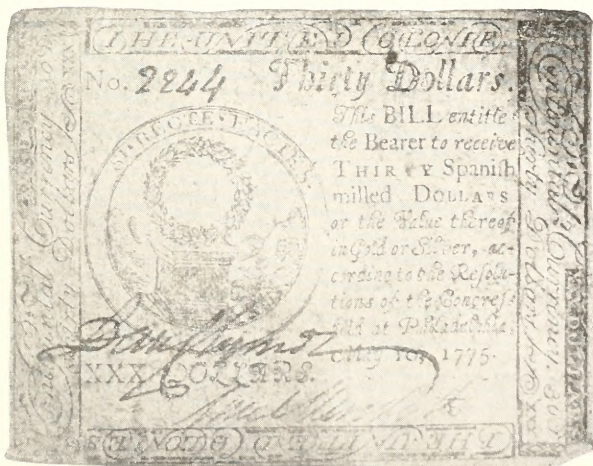 THE UNITED COLONIES
No. 2244 Thirty Dollars.
This BILL entitles
the Bearer to receive
THIRTY Spanish
milled DOLLARS
or the Value thereof
in Gold or Silver, ac-
cording to the Resolu-
tions of the Congress
held at Philadelphia,
May 10, 1775.
SI RECTE FACIES.
XXX DOLLARS.
THE UNITED COLONIES
Continental Currency
Thirty Dollars
Continental Currency.
Thirty Dollars